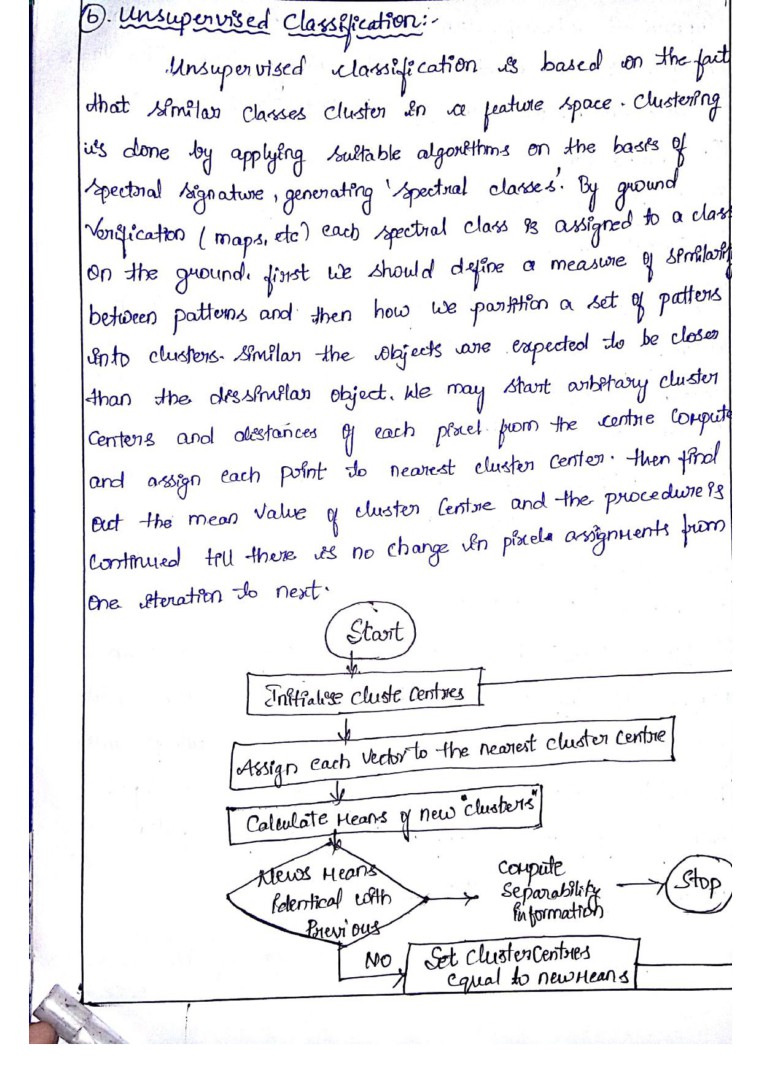 ⑥. Unsupervised Classification:-
Unsupervised classification is based on the fact
that similar classes cluster in a feature space. Clustering
is done by applying suitable algorithms on the bases of
spectral signature, generating 'spectral classes'. By ground
Verification (maps, etc) each spectral class is assigned to a clas
On the ground. first we should define a measure of similarit
between patterns and then how we partition a set of patters
into clusters. Similar the objects are expected to be closer
than the dissimilar object. We may start arbitary cluster
Centers and distances of each pixel from the centre compute
and assign each point to nearest cluster center. then find
out the mean value of cluster Centre and the procedure is
Continued till there is no change in pixels assignments from
one iteration to next.
Start
Initialise cluste Centres
Assign each Vector to the nearest cluster centre
Calculate Means of new "clusters"
News Means
Identical with
Previous
Compute
Separability
information
Stop
NO
Set Cluster Centres
equal to new Means